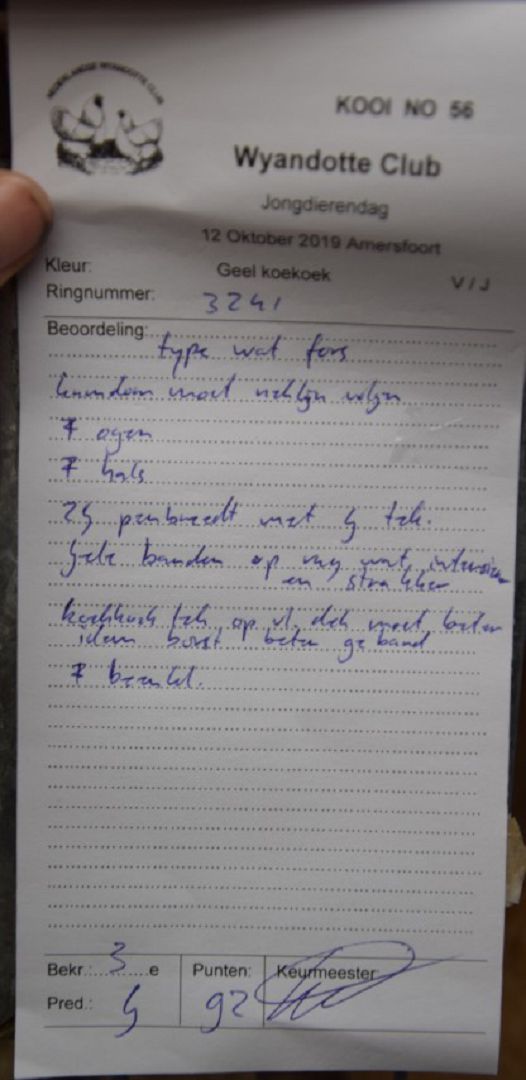 NEDERLANDSE WYANDOTTE CLUB
KOOI NO 56
Wyandotte Club
Jongdierendag
12 Oktober 2019 Amersfoort
Kleur: Geel koekoek V / J
Ringnummer: 3241
Beoordeling:
type wat fors
moet volgen
ogen
hals
met G tek.
Gele banden op rug wat intensiever
en strakker
tek op vl. dek moet beter
idem borst beter geband
Bekr.: 3 e Punten: Keurmeester
Pred.: G 92